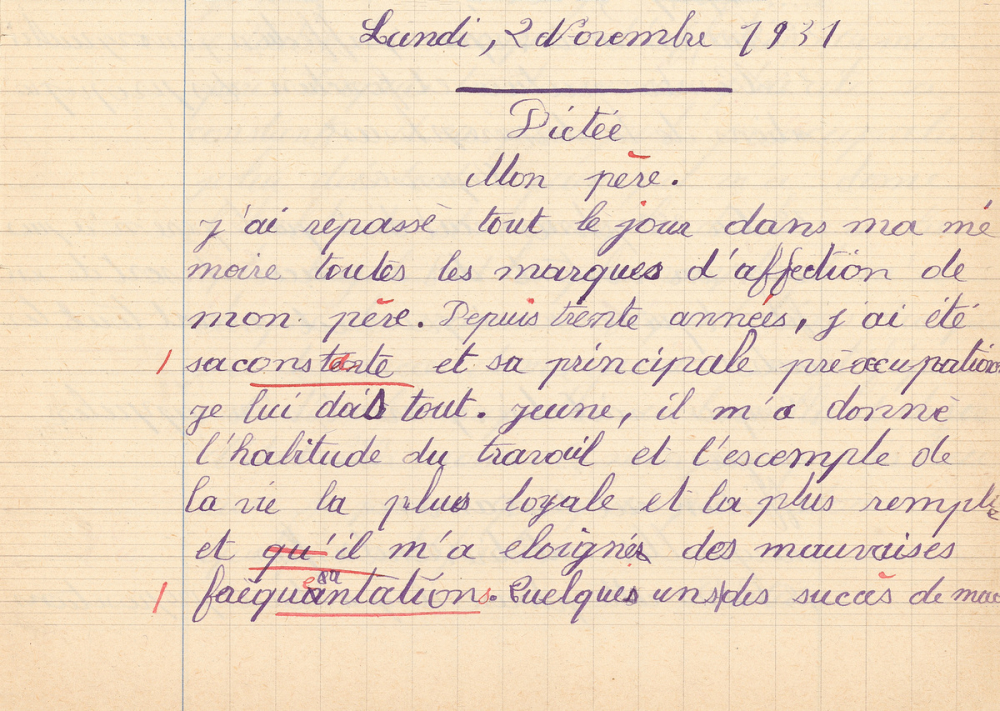 Lundi, 2 Novembre 1931
Dictée
Mon père.
J'ai repassé tout le jour dans ma mé
moire toutes les marques d'affection de
mon père. Depuis trente années, j'ai été
1 sa constante et sa principale préocupation
je lui dois tout. jeune, il m'a donné
l'habitude du travail et l'escemple de
la vie la plus loyale et la plus remplie
et qu'il m'a eloigné des mauvaises
1 faéquantations. Quelques uns des succès de mon